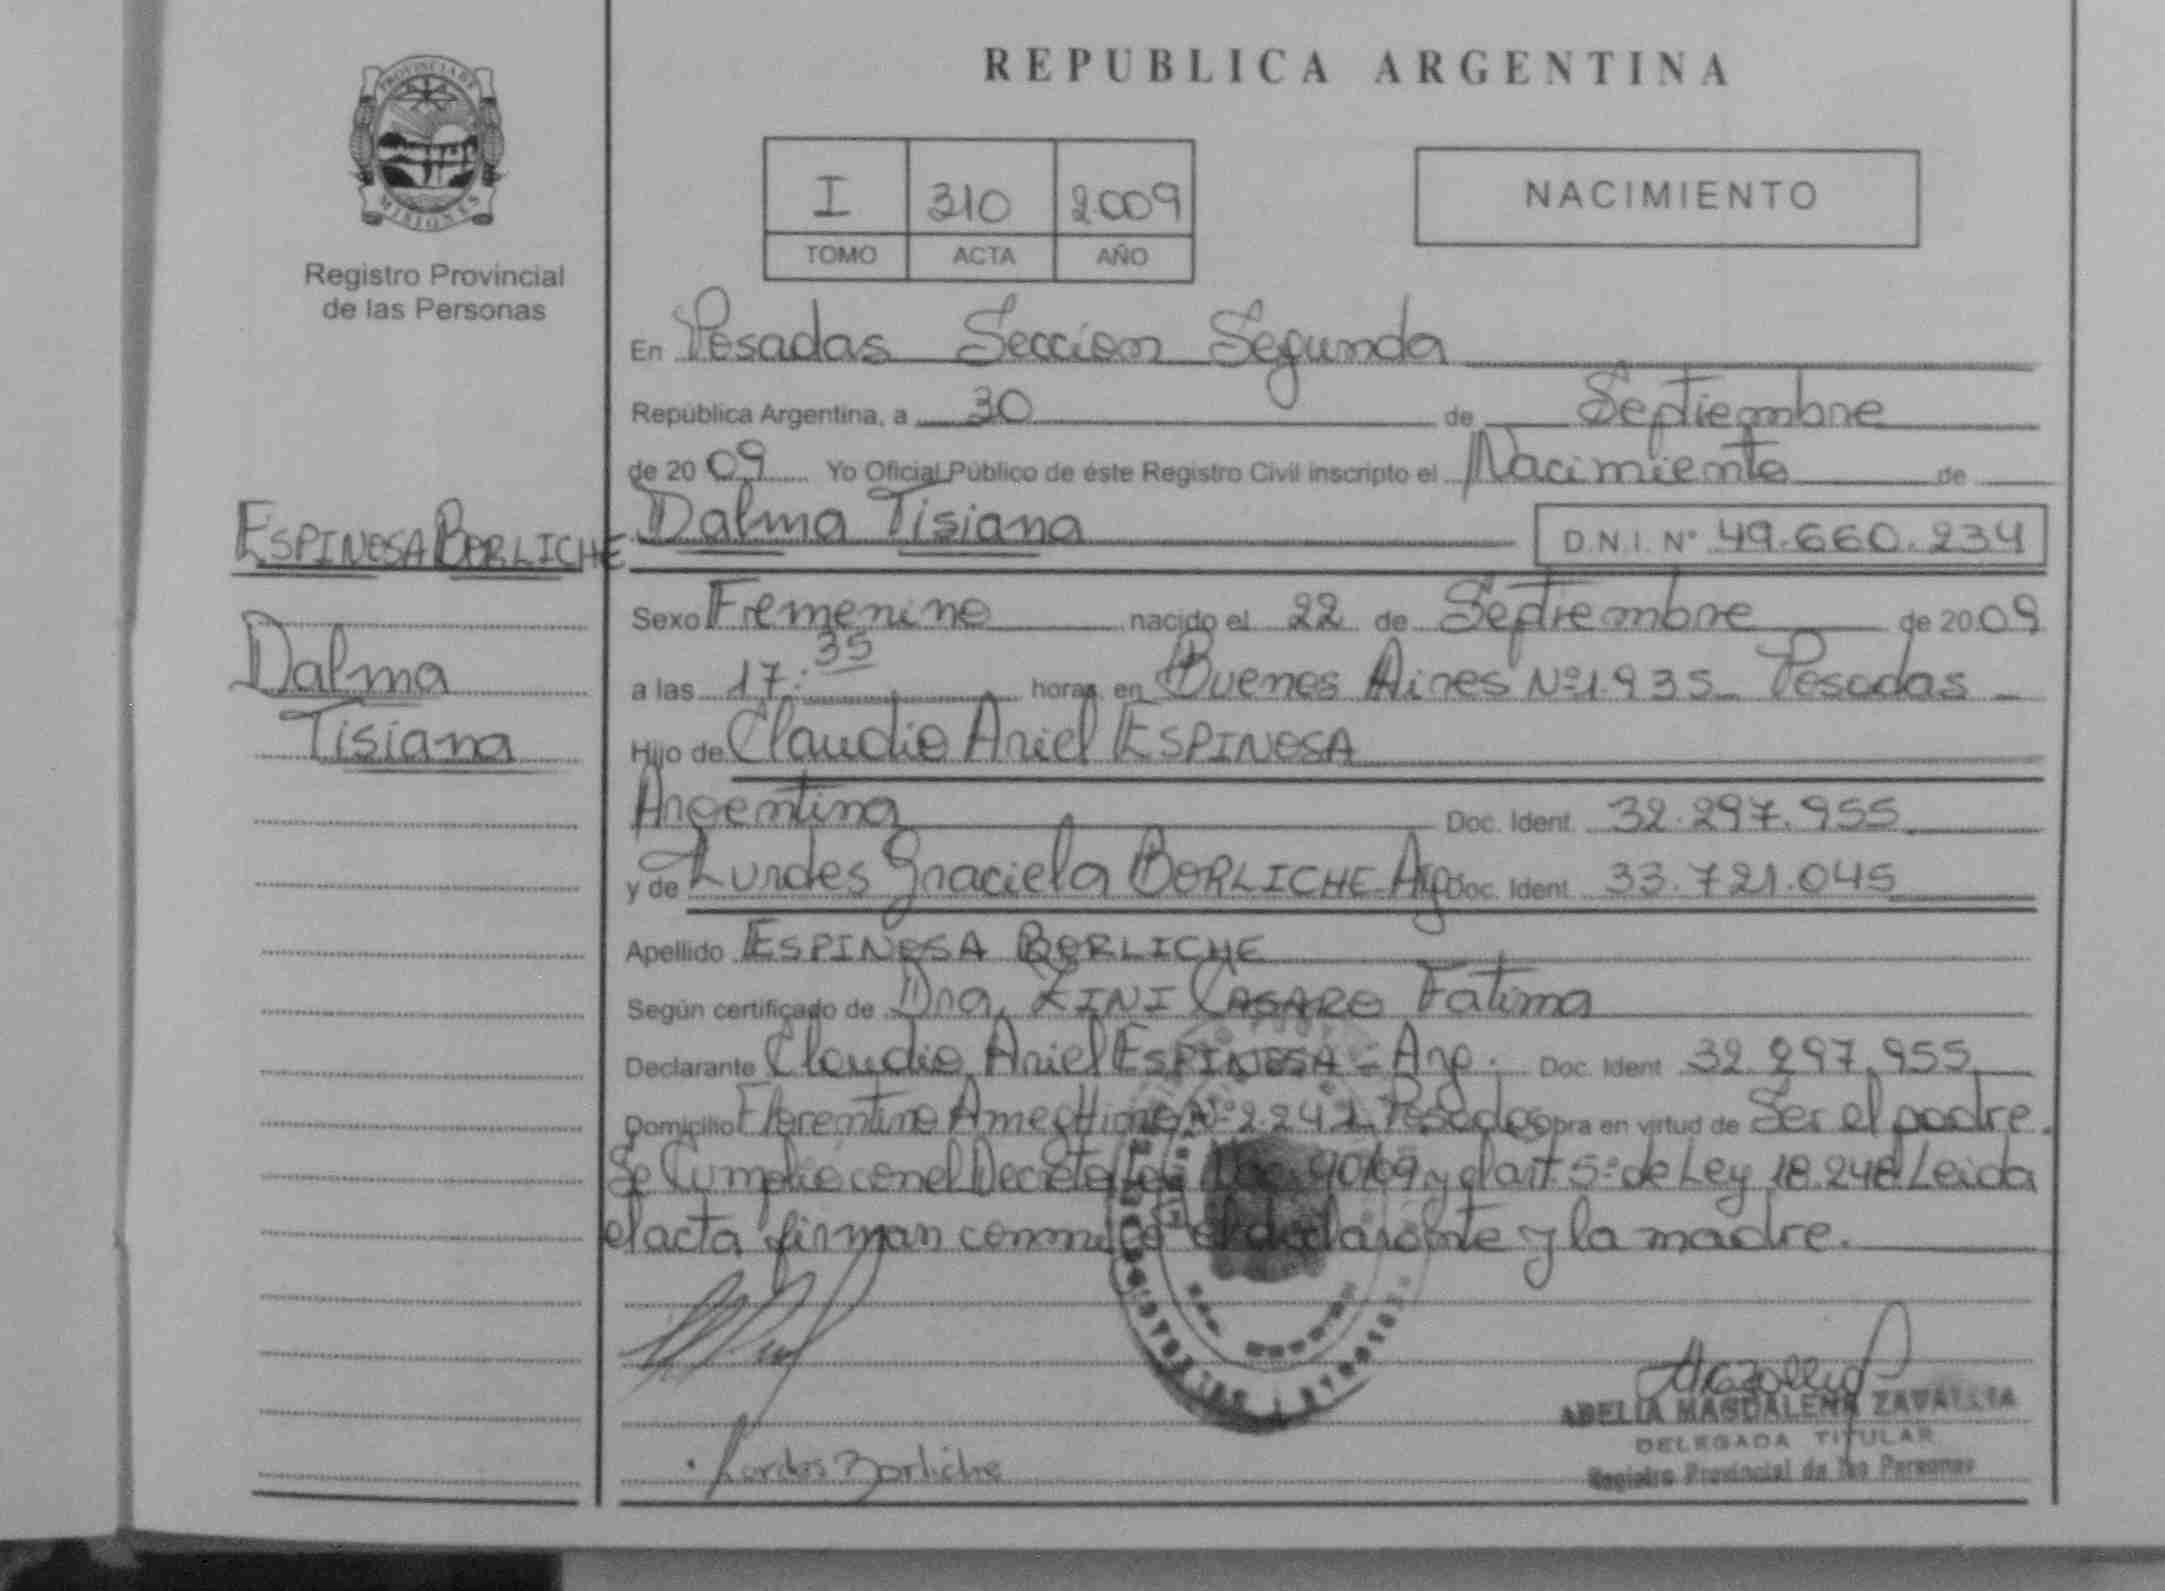 PROVINCIA DE
MISIONES
Registro Provincial
de las Personas
ESPINOSA BORLICHE
Dalma
Tisiana
REPUBLICA ARGENTINA
I 310 2009
TOMO ACTA AÑO
NACIMIENTO
En Posadas Seccion Segunda
República Argentina, a 30 de Septiembre
de 2009 Yo Oficial Público de éste Registro Civil inscripto el Nacimiento de
Dalma Tisiana D.N.I. Nº 49.660.234
Sexo Femenino nacido el 22 de Septiembre de 2009
a las 17:35 horas, en Buenos Aires Nº1.935 Posadas
Hijo de Claudio Ariel ESPINOSA
Argentina Doc. Ident. 32.297.955
y de Lurdes Graciela BORLICHE Arg. Doc. Ident. 33.721.045
Apellido ESPINOSA BORLICHE
Según certificado de Dra. ZINI CASARO Fatima
Declarante Claudio Ariel ESPINOSA - Arg. Doc. Ident. 32.297.955
Domicilio Florentino Ameghino Nº 2.242 Posadas obra en virtud de Ser el padre.
Se Cumplio con el Decreto Ley y el art. 5º de Ley 18.248 Leida
el acta firman conmigo el declarante y la madre.
Lordes Borliche
ABELIA MAGDALENA ZAVALLIA
DELEGADA TITULAR
Registro Provincial de las Personas